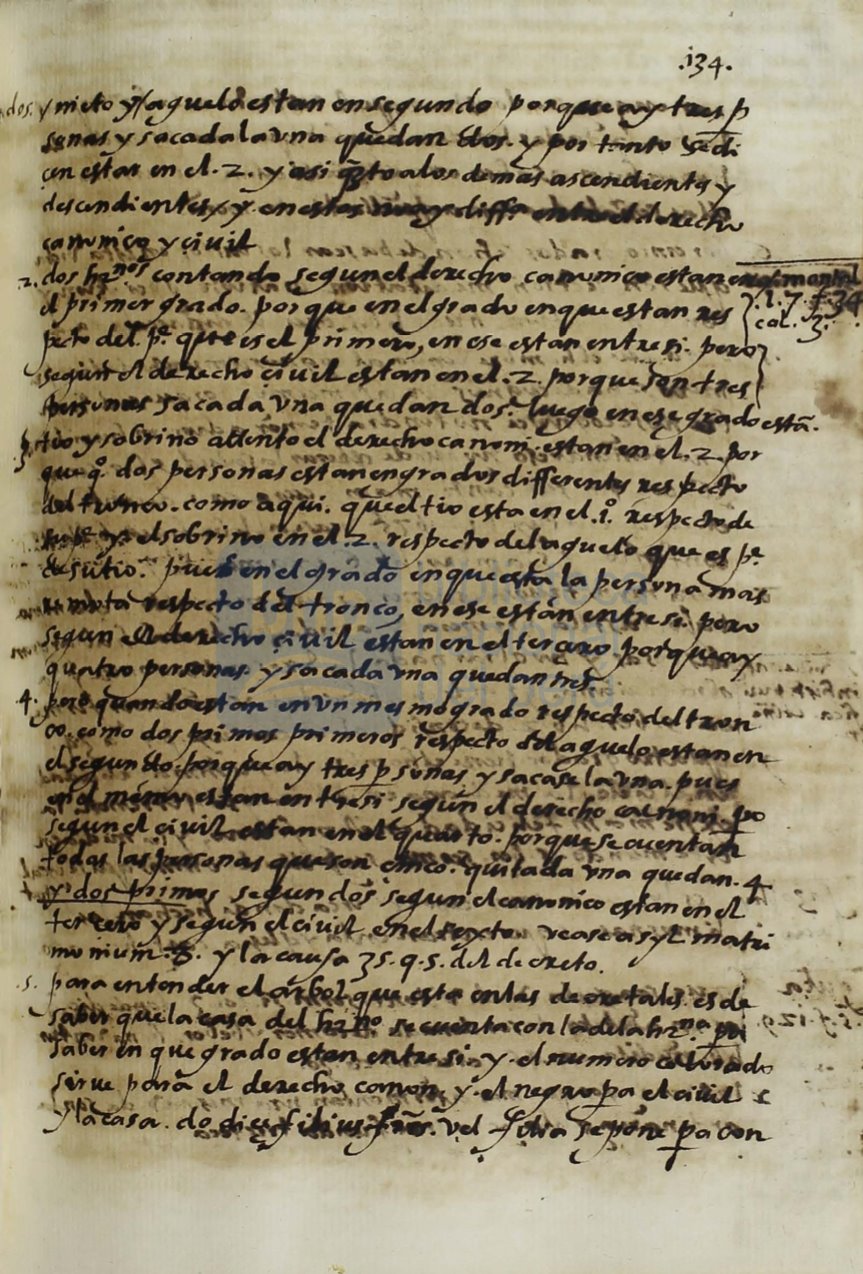 .134.
dos. y nieto y aguelo estan en segundo porque ay tres p
sonas y sacada la vna quedan dos. y por tanto se di
cen estar en el .2. y asi qto a los demas ascendientes y
descendientes, y en estas no ay diffa entre el derecho
canonico y civil
2. dos hrnos contando segun el derecho canonico estan en
el primer grado. porque en el grado en que estan res
pecto del pe que es el primero, en ese estan entre si. pero
segun el derecho civil estan en el .2. porque son tres
personas sacada vna quedan dos. luego en ese grado estā.
.l. 7. f. 34
col. 3.
3. tio y sobrino atento el derecho canoni. estan en el .2. por
que qo dos personas estan en grados differentes respecto
del tronco. como aqui. que el tio esta en el .1o. respecto de
su pe y el sobrino en el .2. respecto del aguelo que es pe
de su tio. pues en el grado en que esta la persona mas
remota respecto del tronco, en ese están entre si. pero
segun el derecho civil estan en el tercero porque ay
quatro personas. y sacada vna quedan tres.
4. pero quando están en vn mesmo grado respecto del tron
co. como dos primos primeros respecto del aguelo estan en
el segundo. porque ay tres psonas y sacase la vna. pues
en el mismo estan entre si segun el derecho canoni. po
segun el civil estan en el quarto. porque se cuentan
todas las personas que son cinco. quitada vna quedan .4
y dos primos segundos segun el canonico estan en el
tercero y segun el civil en el sexto. vease a syl. matri
monium .8. y la causa 35. q. 5. del decreto.
5. para entender el árbol que esta en las decretales. es de
saber que la casa del hrno se cuenta con la de la hrna pa
saber en que grado estan entre si. y el numero colorado
sirve para el derecho canon. y el negro pa el civil
y la casa. do dice filius frīs. vel filia se pone pa con